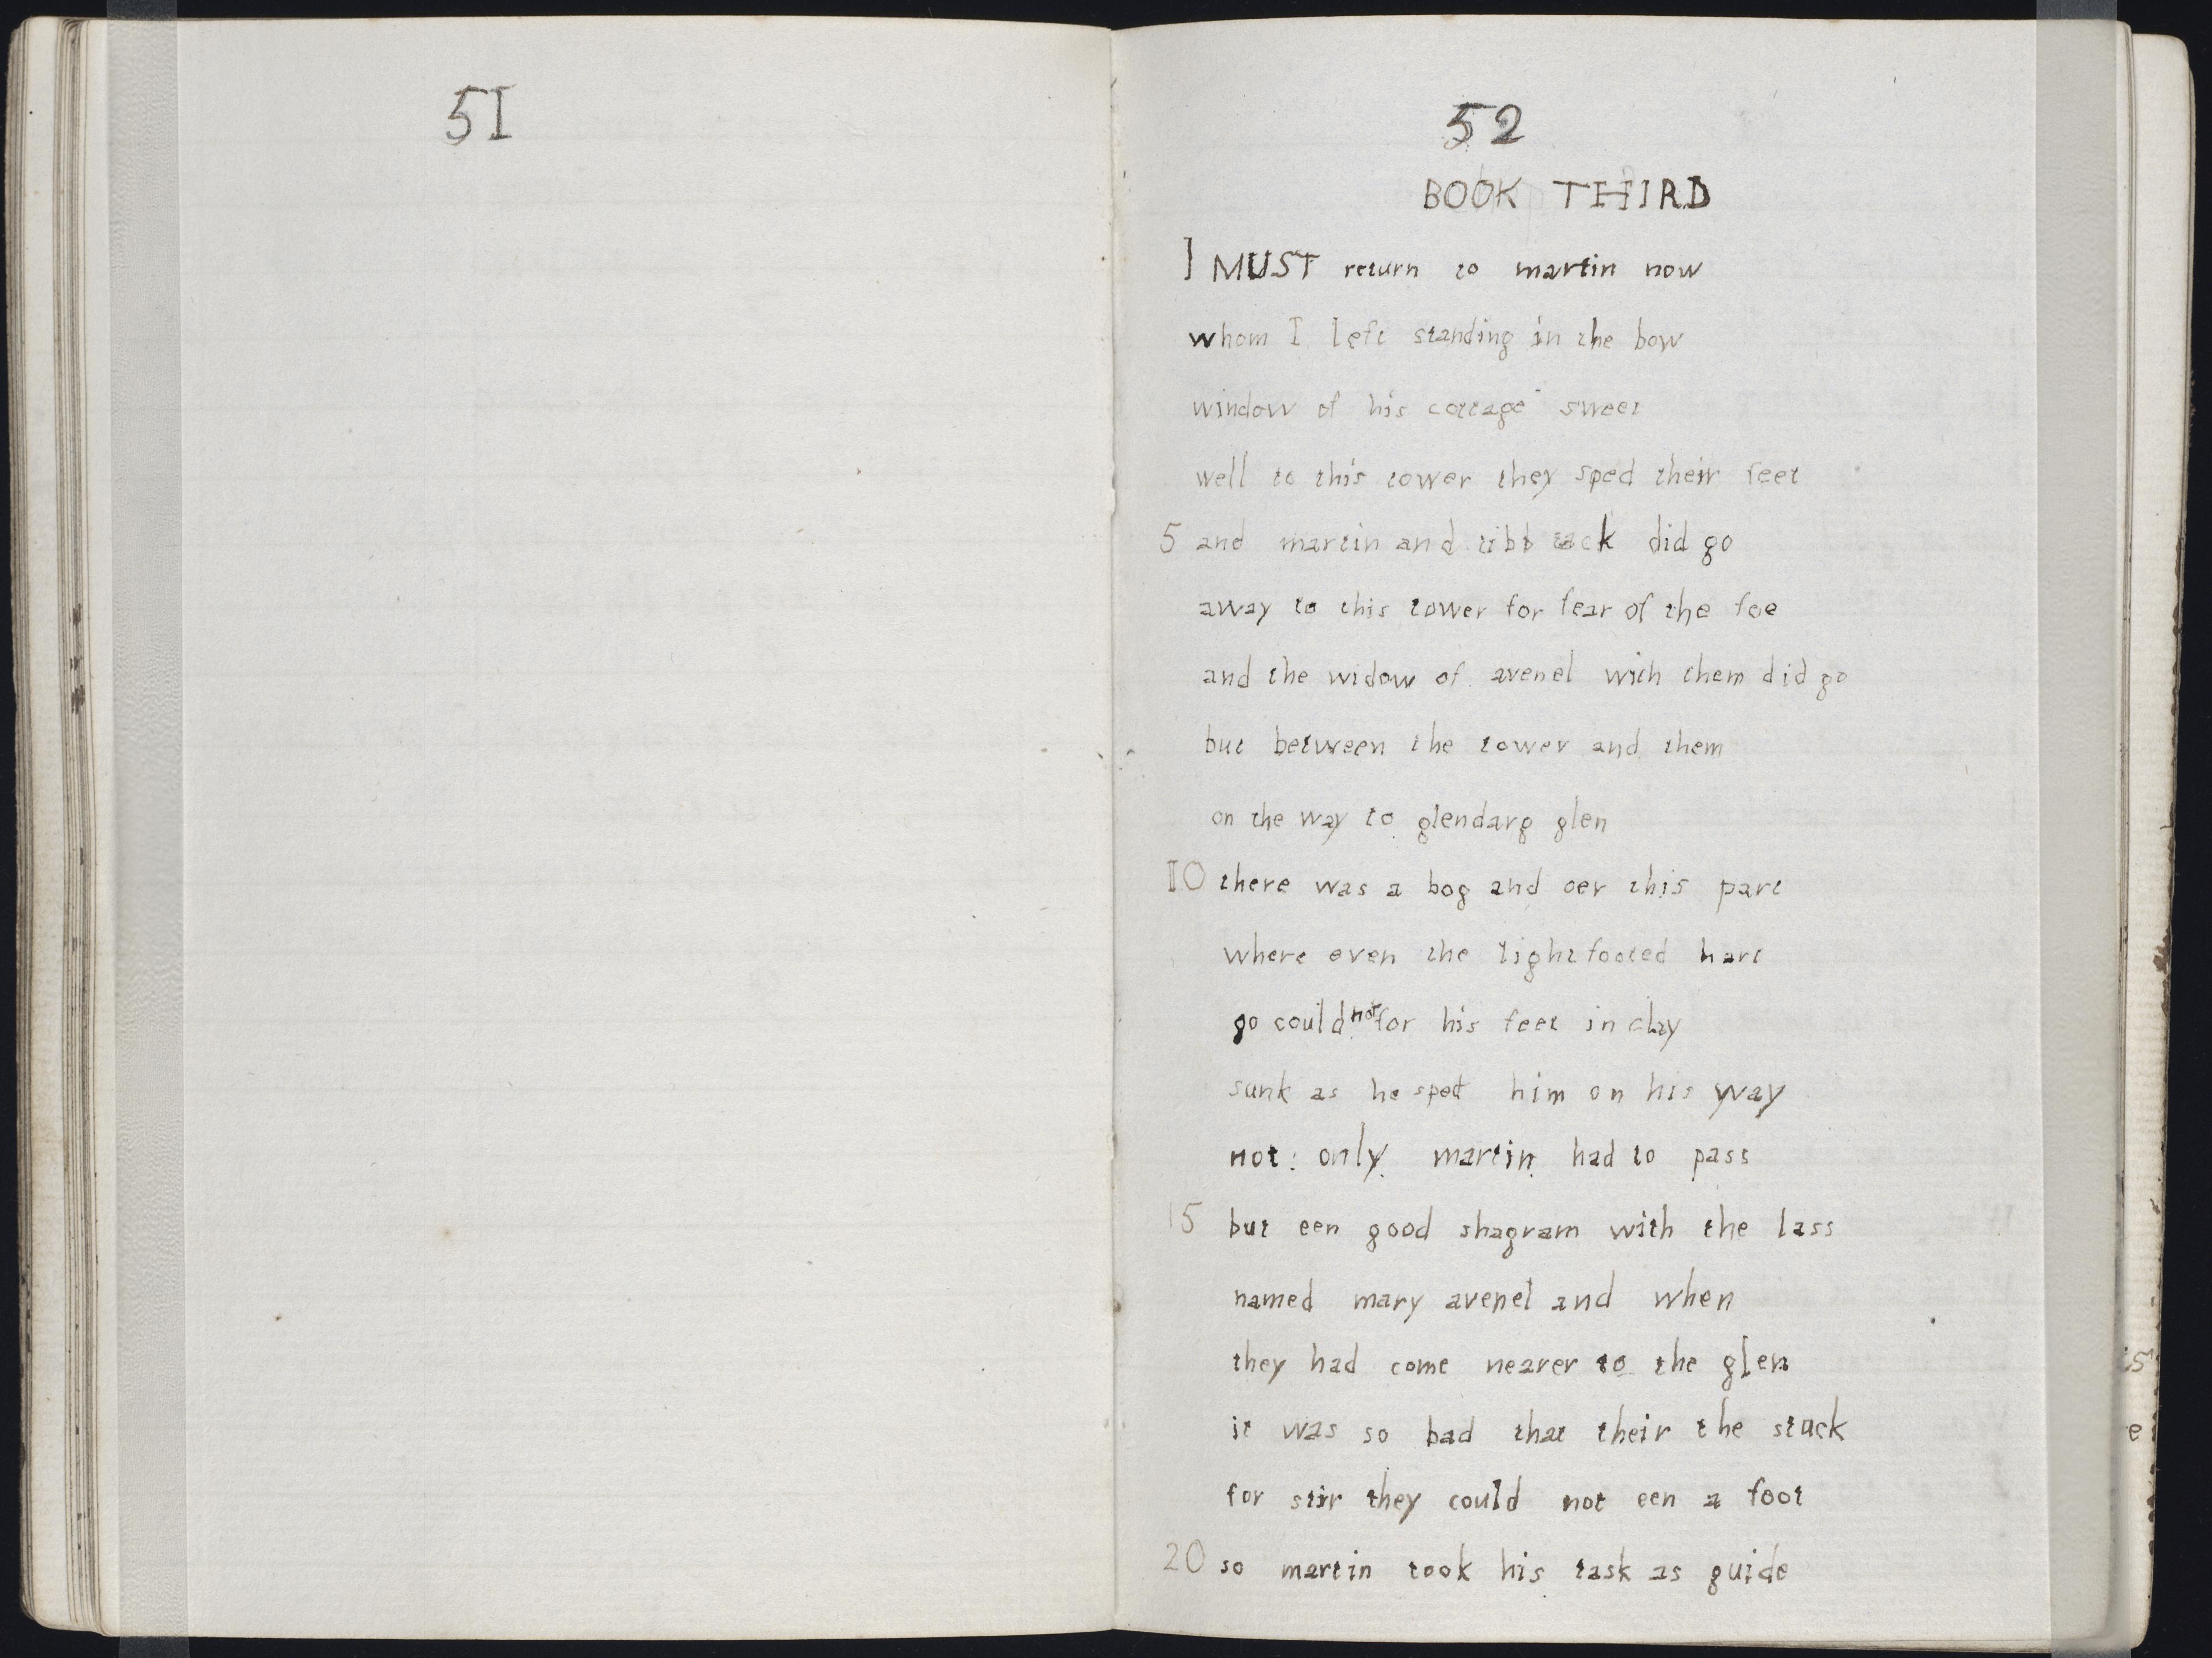 51
52
BOOK THIRD
I MUST return to martin now
whom I left standing in the bow
window of his cottage sweet
well to this tower they sped their feet
5 and martin and tibb tack did go
away to this tower for fear of the foe
and the widow of avenel with them did go
but between the tower and them
on the way to glendarg glen
10 there was a bog and oer this part
where even the lightfooted hart
go could not for his feet in clay
sunk as he sped him on his way
not only martin had to pass
15 but een good shagram with the lass
named mary avenel and when
they had come nearer to the glen
it was so bad that their the stuck
for stir they could not een a foot
20 so martin took his task as guide